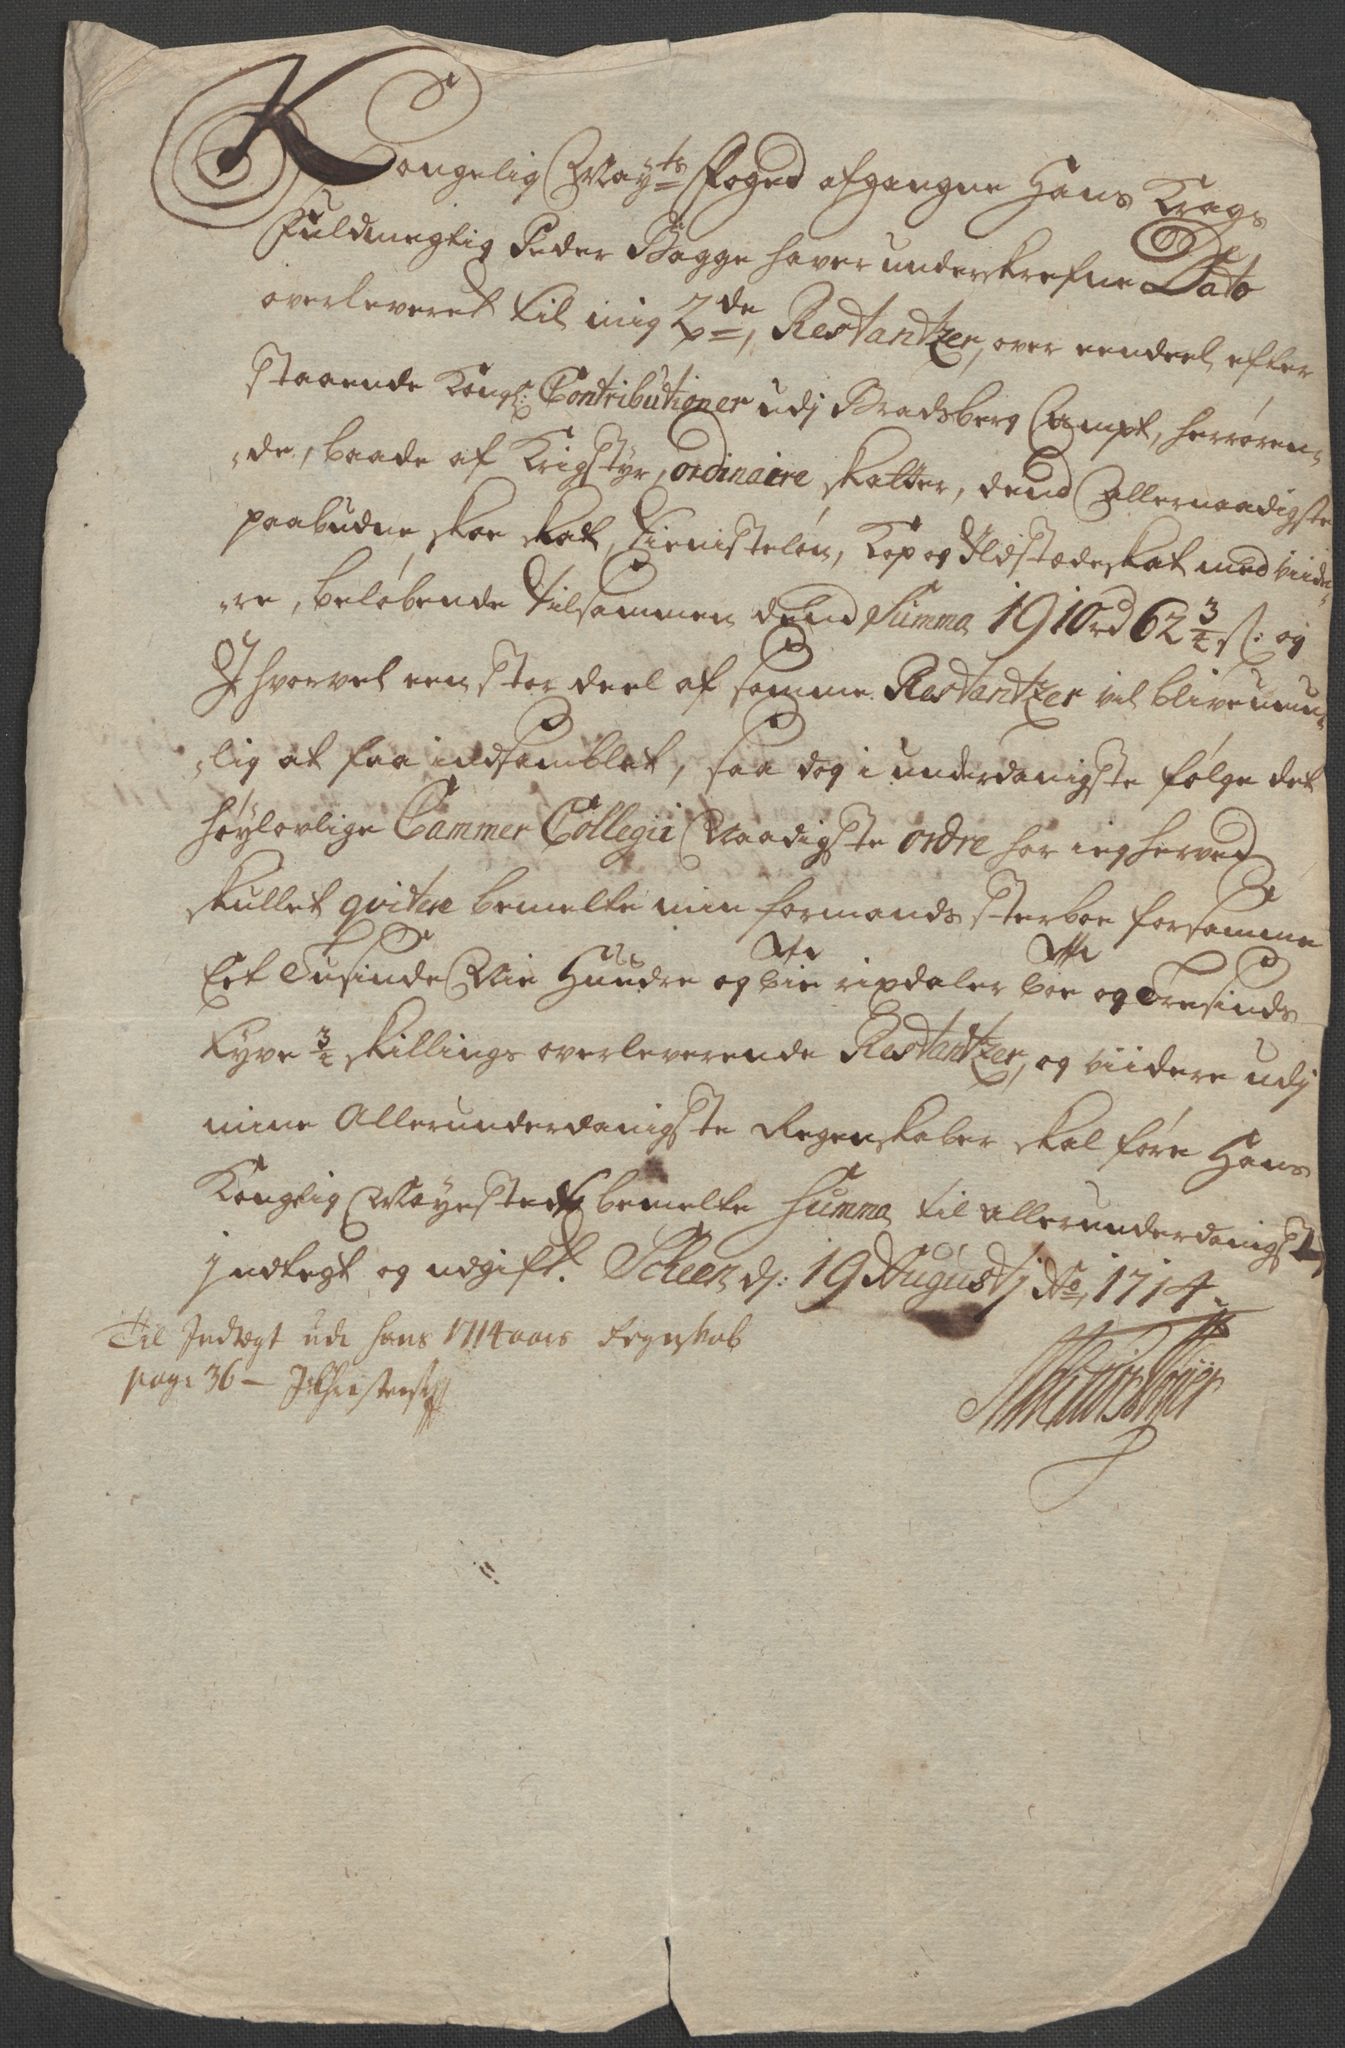 Kongelig Mayts Foged afgangne Hans Krags
Fuldmegtig Peder Bagge haver underskrefne Dato
overleveret til mig 2de, Restantzer, over eendeel efter
staaende Kongl: Contributioner udj Bradsberg Ampt, herrøren-
-de, baade af Krigstyr, ordinaire skatter, dend Allernaadigste
paabudne skoe skat, tienisteløn, Kop og Ildstædeskat med viide-
-re, beløbende tilsammen dend Summa 1910 rd 62 3/4 s: og
Ihvorvel een stor deel af samme Restantzer vil blive umu-
-lig at faa indsamblet, saa dog i underdanigste følge det
høylovlige Cammer Collegii Naadigste ordre har ieg herved
skullet qvitere bemelte min formands sterboe for samme
Eet Tusinde Nie Hundre og tie rixdaler toe og Tresinds-
tyve 3/4 skillings overleverende Restantzer, og viidere udj
mine Allerunderdanigste Regenskaber skal føre Hans
Konglig Mayestets bemelte Summa til allerunderdanigste
Indtegt og udgift. Scheen dj: 19 Augustj Ao, 1714
Til Indtegt udi hans 1714 aars Regnskab
pag: 36 –